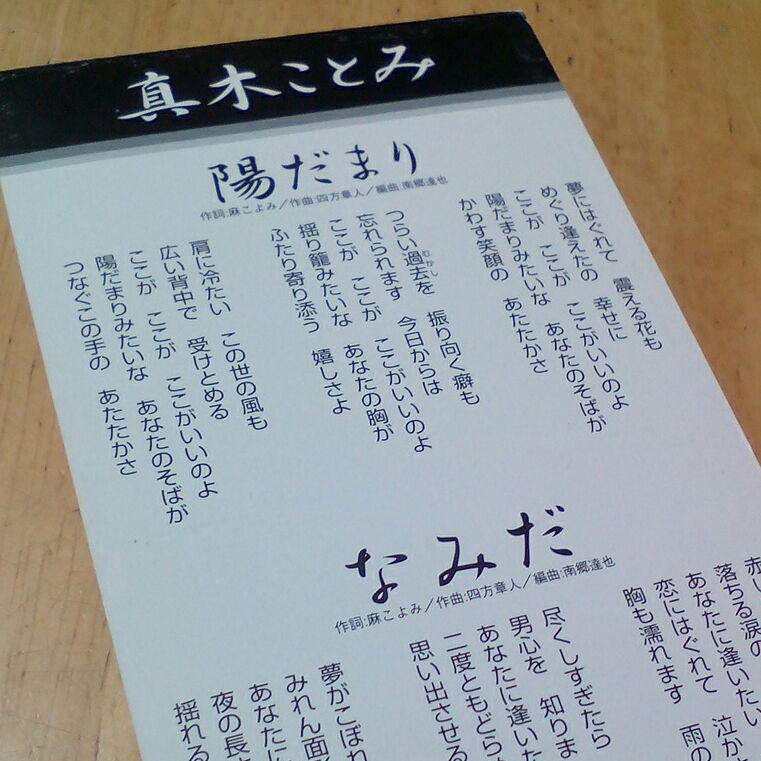 真木ことみ
陽だまり
作詞:麻こよみ/作曲:四方章人/編曲:南郷達也
夢にはぐれて 震える花も
めぐり逢えたの 幸せに
ここが ここが ここがいいのよ
陽だまりみたいな あなたのそばが
かわす笑顔の あたたかさ
つらい過去を 振り向く癖も
むかし
忘れられます 今日からは
ここが ここが ここがいいのよ
揺り籠みたいな あなたの胸が
ふたり寄り添う 嬉しさよ
肩に冷たい この世の風も
広い背中で 受けとめる
ここが ここが ここがいいのよ
陽だまりみたいな あなたのそばが
つなぐこの手の あたたかさ
なみだ
作詞:麻こよみ/作曲:四方章人/編曲:南郷達也
赤い
落ちる涙の
あなたに逢いたい 泣か
恋にはぐれて 雨の
胸も濡れます
尽くしすぎたら
男心を 知りま
あなたに逢いた
二度ともどら
思い出させる
夢がこぼれ
みれん面影
あなたに
夜の長さ
揺れる